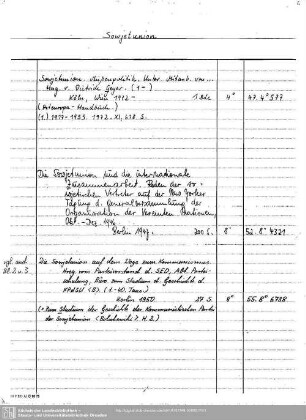 Sowjetunion
Sowjetunion. Außenpolitik. Unter Mitarb. von ...
Hrsg. v. Dietrich Geyer. (1-)
Köln, Wien 1972- 1 Bde 4° 47.4°577
(Osteuropa-Handbuch.)
(1.) 1917-1955. 1972. XI, 618 S.
Die Sowjetunion und die internationale
Zusammenarbeit. Reden der so-
wjetischen Vertreter auf der New Yorker
Tagung d. Generalversammlung der
Organisation der Vereinten Nationen,
Okt.-Dez. 1946
Berlin 1947. 200 S. 8° 52.8°4321
vgl. auch Die Sowjetunion auf dem Wege zum Kommunismus.
Hrsg. vom Parteivorstand d. SED, Abt. Partei-
schulung, Büro zum Studium d. Geschichte d.
KPdSU (B). (1.-40. Taus.)
Berlin 1950. 37 S. 8° 55.8°6788
(= Zum Studium der Geschichte der Kommunistischen Partei
der Sowjetunion (Bolschewiki). H. 2.)